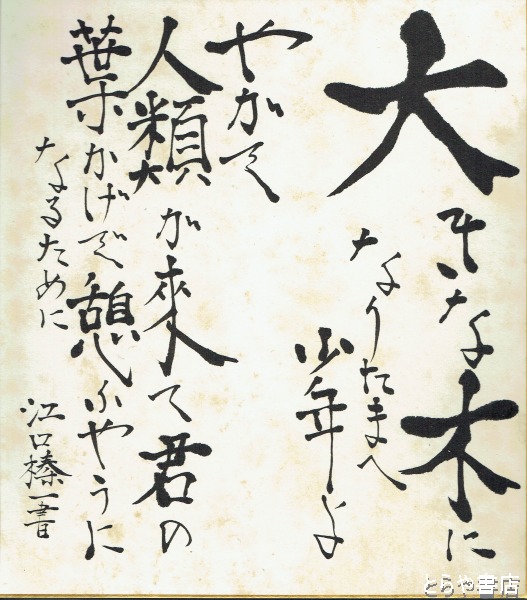 大きな木に
なりたまへ
少年よ
やがて
人類が來て君の
葉かげで憩ふやうに
なるために
江口榛一書
とらや書店